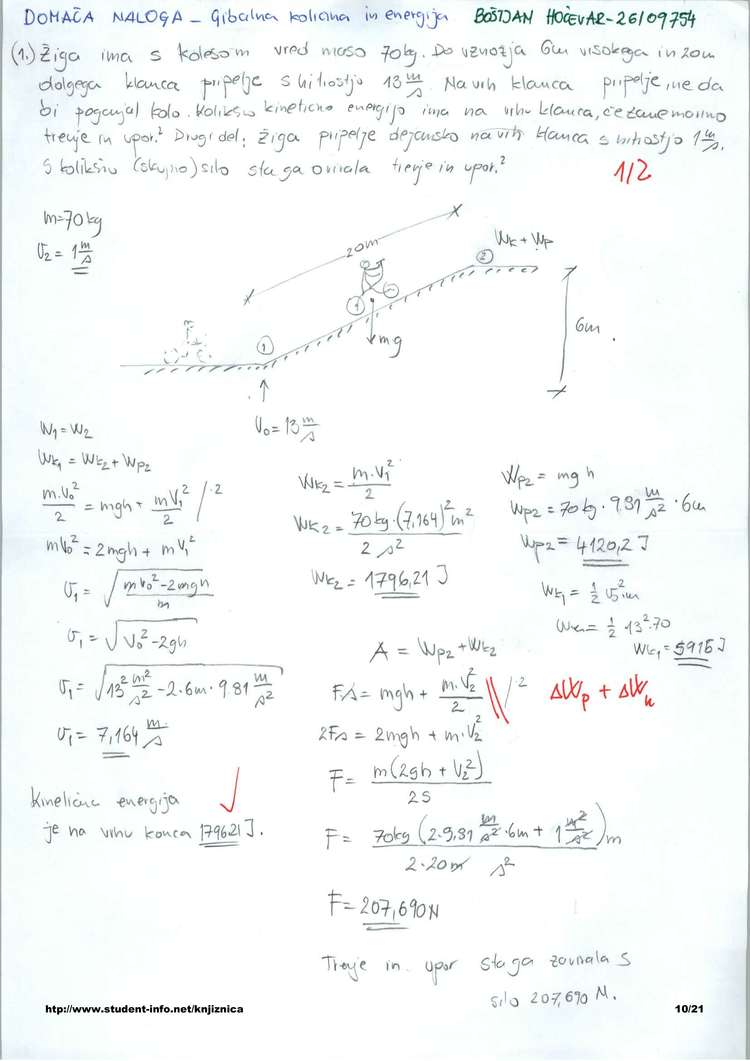 DOMAČA NALOGA - Gibalna količina in energija BOŠTJAN HOČEVAR-26109754
(1.) Žiga ima s kolesom vred maso 70kg. Do vznožja 6m visokega in 20m
dolgega klanca pripelje s hitrostjo 13 m/s. Na vrh klanca pripelje, ne da
bi poganjal kolo. Kolikšno kinetično energijo ima na vrhu klanca, če zanemarimo
trenje in upor? Drugi del: Žiga pripelje dejansko na vrh klanca s hitrostjo 1 m/s.
S kolikšno (skupno) silo sta ga ovirala trenje in upor?
1/2
m=70kg
V₂ = 1 m/s
20m
Wk + Wp
②
①
①
mg
6m
V₀ = 13 m/s
W₁ = W₂
Wk₁ = Wk₂ + Wp₂
m.V₀²/2 = mgh + mV₁²/2 /·2
mV₀² = 2mgh + mV₁²
V₁ = √((mv₀²-2mgh)/m)
V₁ = √(V₀²-2gh)
V₁ = √(13² m²/s² - 2·6m·9.81 m/s²)
V₁ = 7,164 m/s
Kinetična energija
je na vrhu konca 1796.21 J.
Wk₂ = m·V₁²/2
Wk₂ = 70kg·(7,164)² m²/2 s²
Wk₂ = 1796,21 J
Wp₂ = mgh
Wp₂ = 70kg · 9,81 m/s² · 6m
Wp₂ = 4120,2 J
Wk₁ = ½ v²·m
Wk₁ = ½ 13²·70
Wk₁ = 5915 J
A = Wp₂ + Wk₂
Fs = mgh + m·V₂²/2 /·2 ΔWp + ΔWk
2Fs = 2mgh + m·V₂²
F = m(2gh + V₂²)/2s
F = 70kg (2·9,81 m/s² · 6m + 1 m²/s²) m/2·20m s²
F = 207,690 N
Trenje in upor sta ga zavirala s
silo 207,690 N.
http://www.student-info.net/knjiznica
10/21